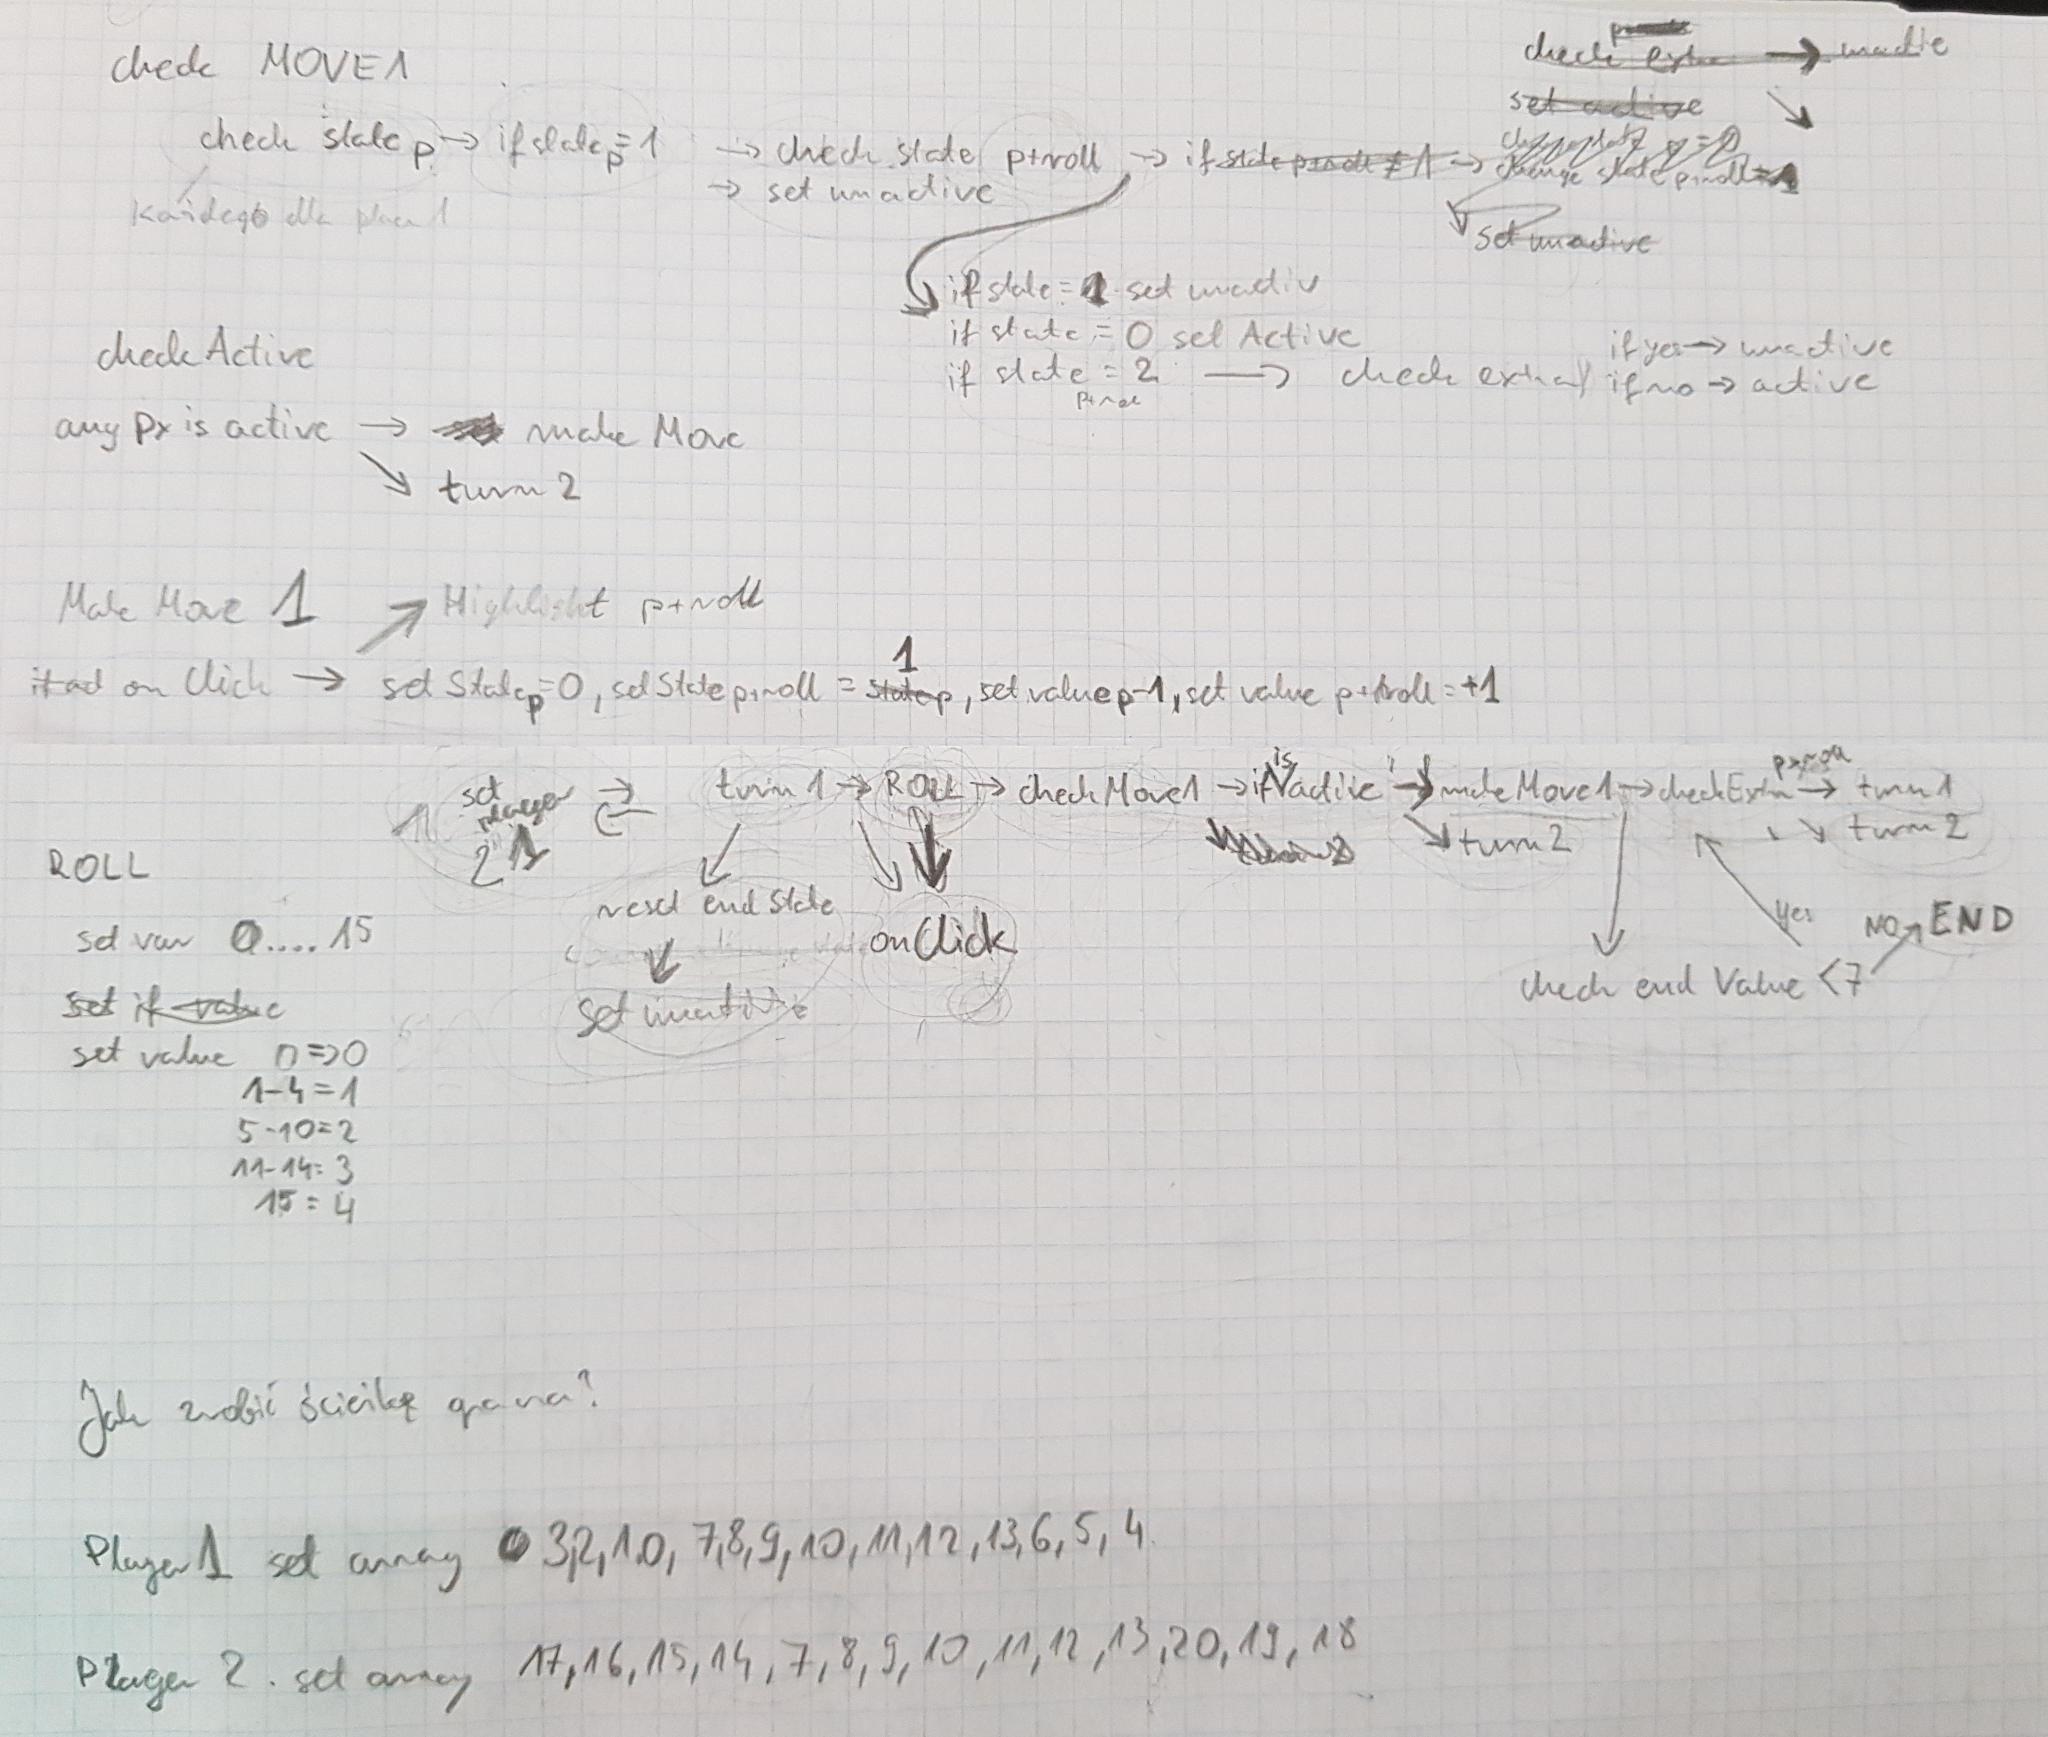 check MOVE1
check extra → unactive
set active
check state p → if state p = 1 → check state p+roll → if state p+roll ≠ 1 →
change state p+roll = 1
→ set unactive
Każdego dla player 1
set unactive
if state = 1 set unactiv
if state = 0 set Active
if state p+roll = 2 → check extra
if yes → unactive
if no → active
check Active
any px is active → make Move
turn 2
Make Move 1
Highlight p+roll
on Click → set State p = 0, set State p+roll = state p 1, set value p-1, set value p+roll = +1
set player 1 turn 1 → ROLL → checkMove1 → if is active → makeMove1 → checkExtra p+roll → turn 1
2
turn 2
turn 2
reset end State
set inactive
onClick
check end Value <7
Yes
NO → END
ROLL
set var 0....15
set if value
set value 0 => 0
1-4 = 1
5-10 = 2
11-14 = 3
15 = 4
Jak zrobić ścieżkę gracza?
Player 1 set array 3,2,1,0,7,8,9,10,11,12,13,6,5,4
Player 2. set array 17,16,15,14,7,8,9,10,11,12,13,20,19,18